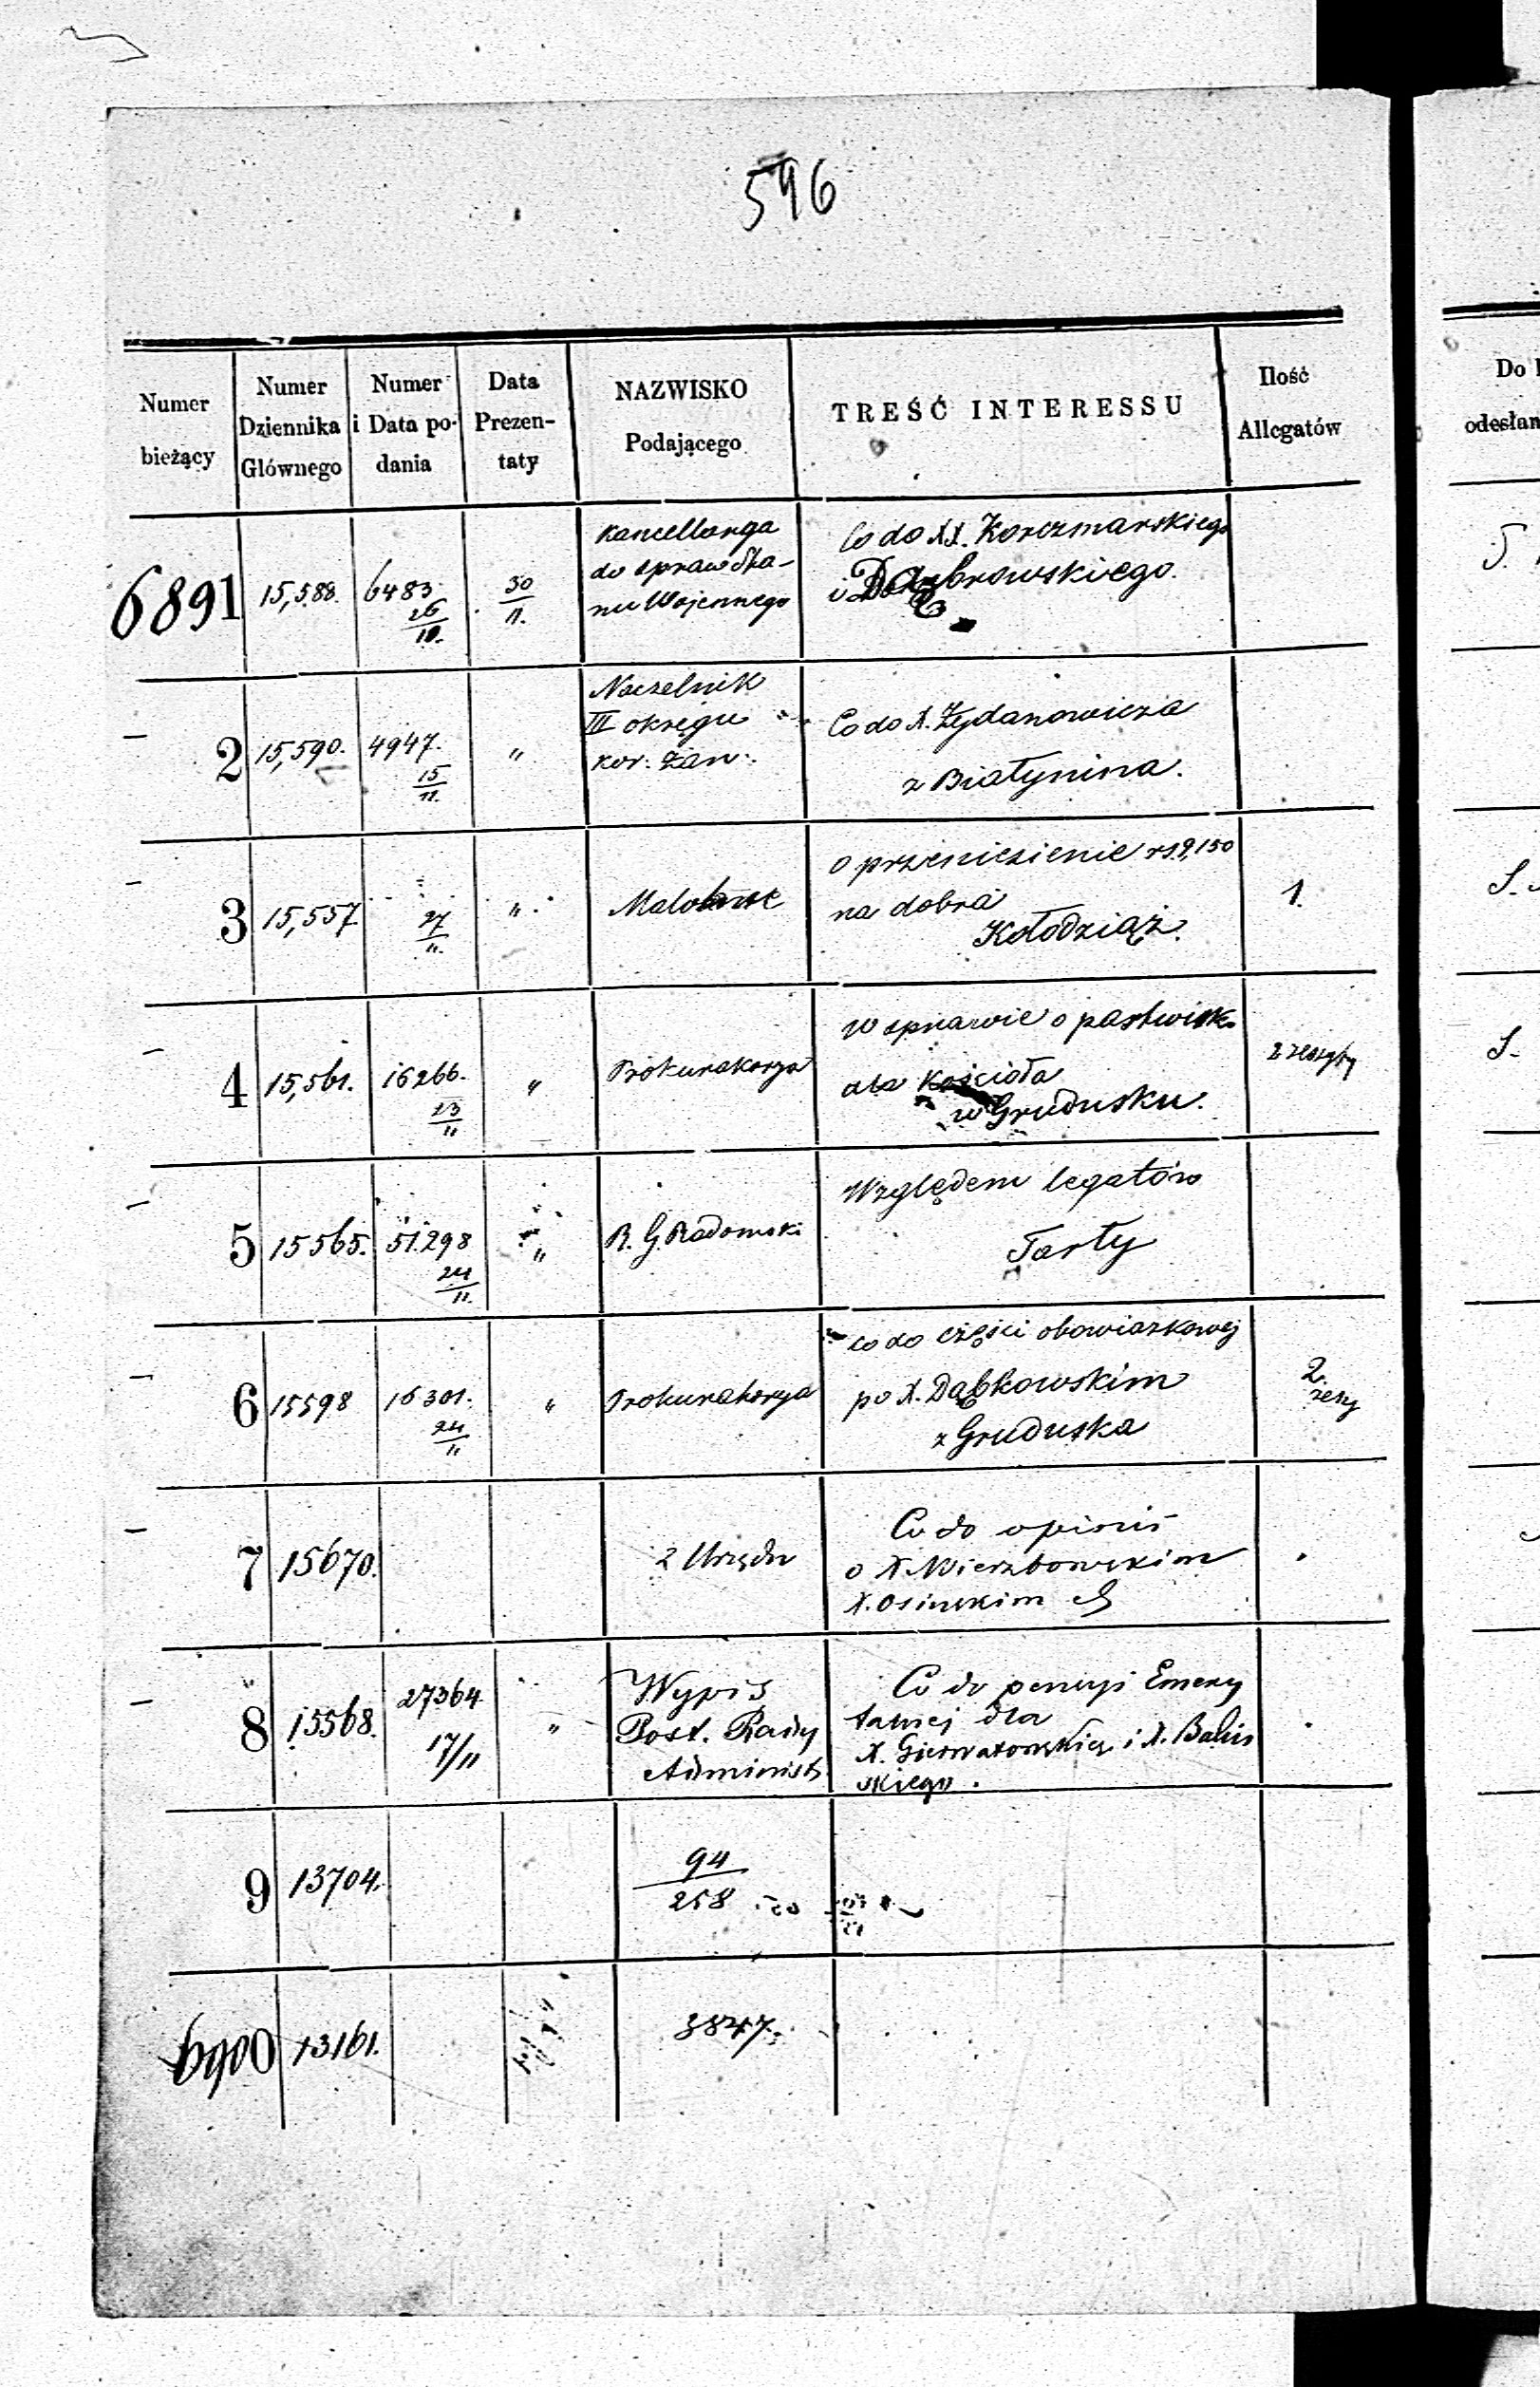 596
Numer bieżący
Numer Dziennika Głównego
Numer i Data podania
Data Prezentaty
NAZWISKO Podającego
TREŚĆ INTERESSU
Ilość Allegatów
Do
odesłan
6891 15,588. 6483 26/11. 30/11.
Kancellarya
do spraw Sta-
nu Wojennego
Co do XX. Korczmarskiego
i Dąbrowskiego.
2 15,590. 4947. 15/11. "
Naczelnik
III okręgu
kor: Żan:
Co do X. Żydanowicza
z Białynina.
3 15,557 27/11. "
o przeniesienie rs. 9,150
na dobra
Kołodziąż.
1.
4 15,561. 16266. 23/11 "
Prokuratorya
w sprawie o pastwisk
dla Kościoła
w Grudusku.
2 zeszyty
5 15565. 51298 24/11. "
R. G. Radomski
Względem legatów
Tarły
6 15598 16301. 24/11 "
Prokuratorya
co do części obowiązkowej
po X. Dąbkowskim
z Gruduska
2.
zeszy
7 15670.
z Urzędu
Co do opinii
o X. Wierzbowskim
X. Osinskim
8 15568. 27364 17/11 "
Wypis
Post. Rady
Administ.
Co do pensyi Emery
talnej dla
X. i X.
skiego.
9 13704.
94/258
6900 13161.
3847.